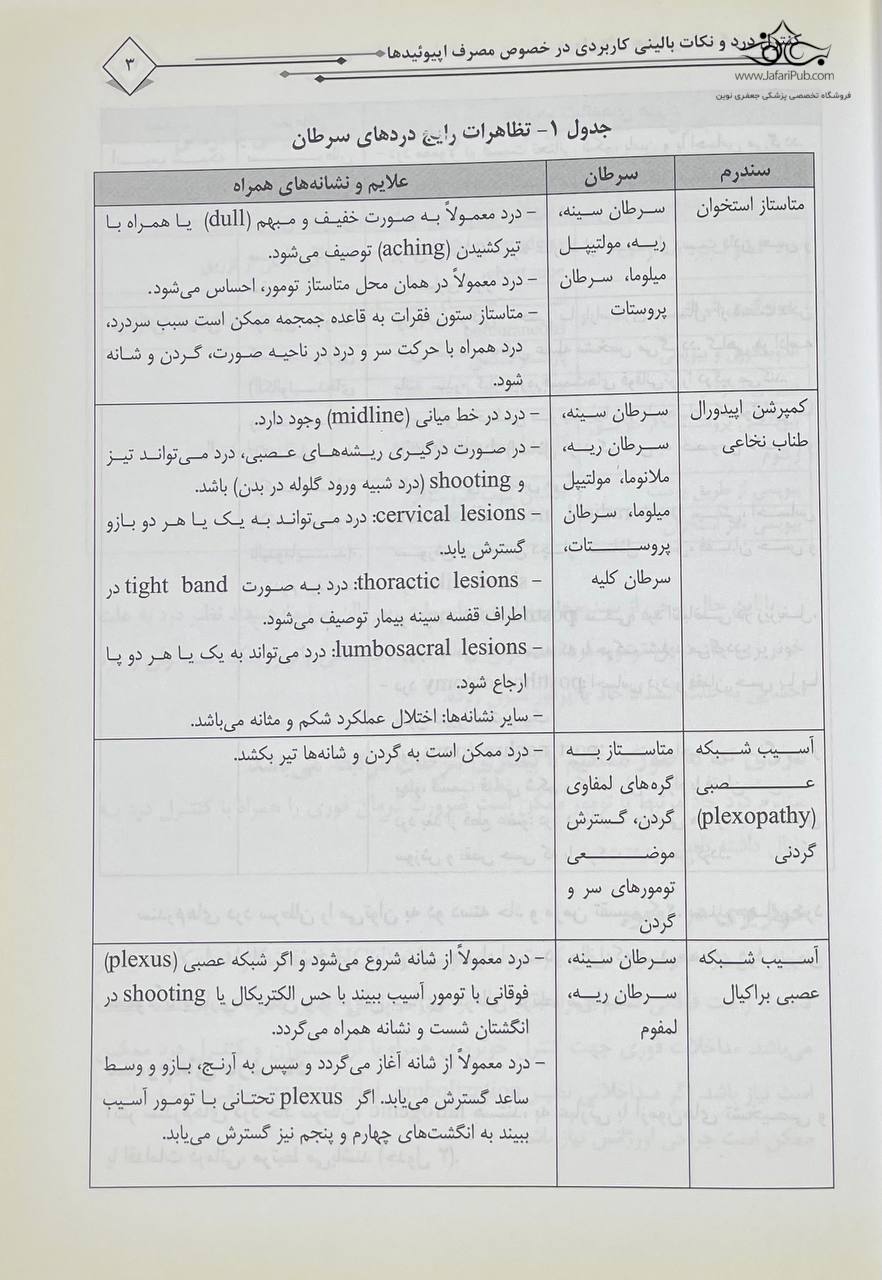 کنترل درد و نکات بالینی کاربردی در خصوص مصرف اپیوئیدها
۳
www.JafariPub.com
فروشگاه تخصصی پزشکی جعفری نوین
جدول ۱- تظاهرات رایج دردهای سرطان
سندرم
سرطان
علایم و نشانه‌های همراه
متاستاز استخوان
سرطان سینه،
ریه، مولتیپل
میلوما، سرطان
پروستات
- درد معمولاً به صورت خفیف و مبهم (dull) یا همراه با
تیر کشیدن (aching) توصیف می‌شود.
- درد معمولاً در همان محل متاستاز تومور، احساس می‌شود.
- متاستاز ستون فقرات به قاعده جمجمه ممکن است سبب سردرد،
درد همراه با حرکت سر و درد در ناحیه صورت، گردن و شانه
شود.
کمپرشن اپیدورال
طناب نخاعی
سرطان سینه،
سرطان ریه،
ملانوما، مولتیپل
میلوما، سرطان
پروستات،
سرطان کلیه
- درد در خط میانی (midline) وجود دارد.
- در صورت درگیری ریشه‌های عصبی، درد می‌تواند تیز
و shooting (درد شبیه ورود گلوله در بدن) باشد.
- cervical lesions: درد می‌تواند به یک یا هر دو بازو
گسترش یابد.
- thoractic lesions: درد به صورت tight band در
اطراف قفسه سینه بیمار توصیف می‌شود.
- lumbosacral lesions: درد می‌تواند به یک یا هر دو پا
ارجاع شود.
- سایر نشانه‌ها: اختلال عملکرد شکم و مثانه می‌باشد.
آسیب شبکه
عصبی
(plexopathy)
گردنی
متاستاز به
گره‌های لمفاوی
گردن، گسترش
موضعی
تومورهای سر و
گردن
- درد ممکن است به گردن و شانه‌ها تیر بکشد.
آسیب شبکه
عصبی براکیال
سرطان سینه،
سرطان ریه،
لمفوم
- درد معمولاً از شانه شروع می‌شود و اگر شبکه عصبی (plexus)
فوقانی با تومور آسیب ببیند با حس الکتریکال یا shooting در
انگشتان شست و نشانه همراه می‌گردد.
- درد معمولاً از شانه آغاز می‌گردد و سپس به آرنج، بازو و وسط
ساعد گسترش می‌یابد. اگر plexus تحتانی با تومور آسیب
ببیند به انگشت‌های چهارم و پنجم نیز گسترش می‌یابد.